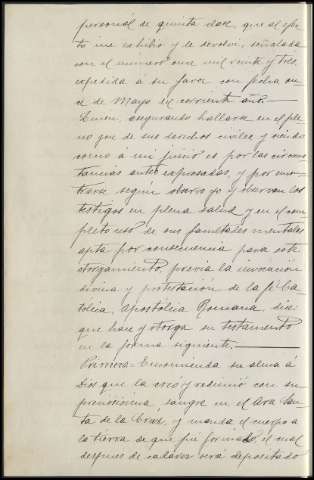 personal de quinta clase que al efec-
to me exhibió y le devolví, señalada
con el número once mil veinte y tres,
expedida á su favor con fecha on-
ce de Mayo del corriente año.—
Quien, asegurando hallarse en el ple-
no goce de sus derechos civiles y siendo
como á mi juicio es por las circuns-
tancias antes expresadas, y por encon-
trarse según observo yo y observan los
testigos en plena salud y en el com-
pleto uso de sus facultades mentales
apta por consecuencia para este
otorgamiento, previa la invocación
divina y protestación de la fé Ca-
tólica, Apostólica Romana, dice
que hace y otorga su testamento
en la forma siguiente.—
Primera- Encomienda su alma á
Dios que la creó y redimió con su
preciosísima sangre en el Ara San-
ta de la Cruz, y manda el cuerpo a
la tierra de que fue formado, el cual
despues de cadaver será depositado